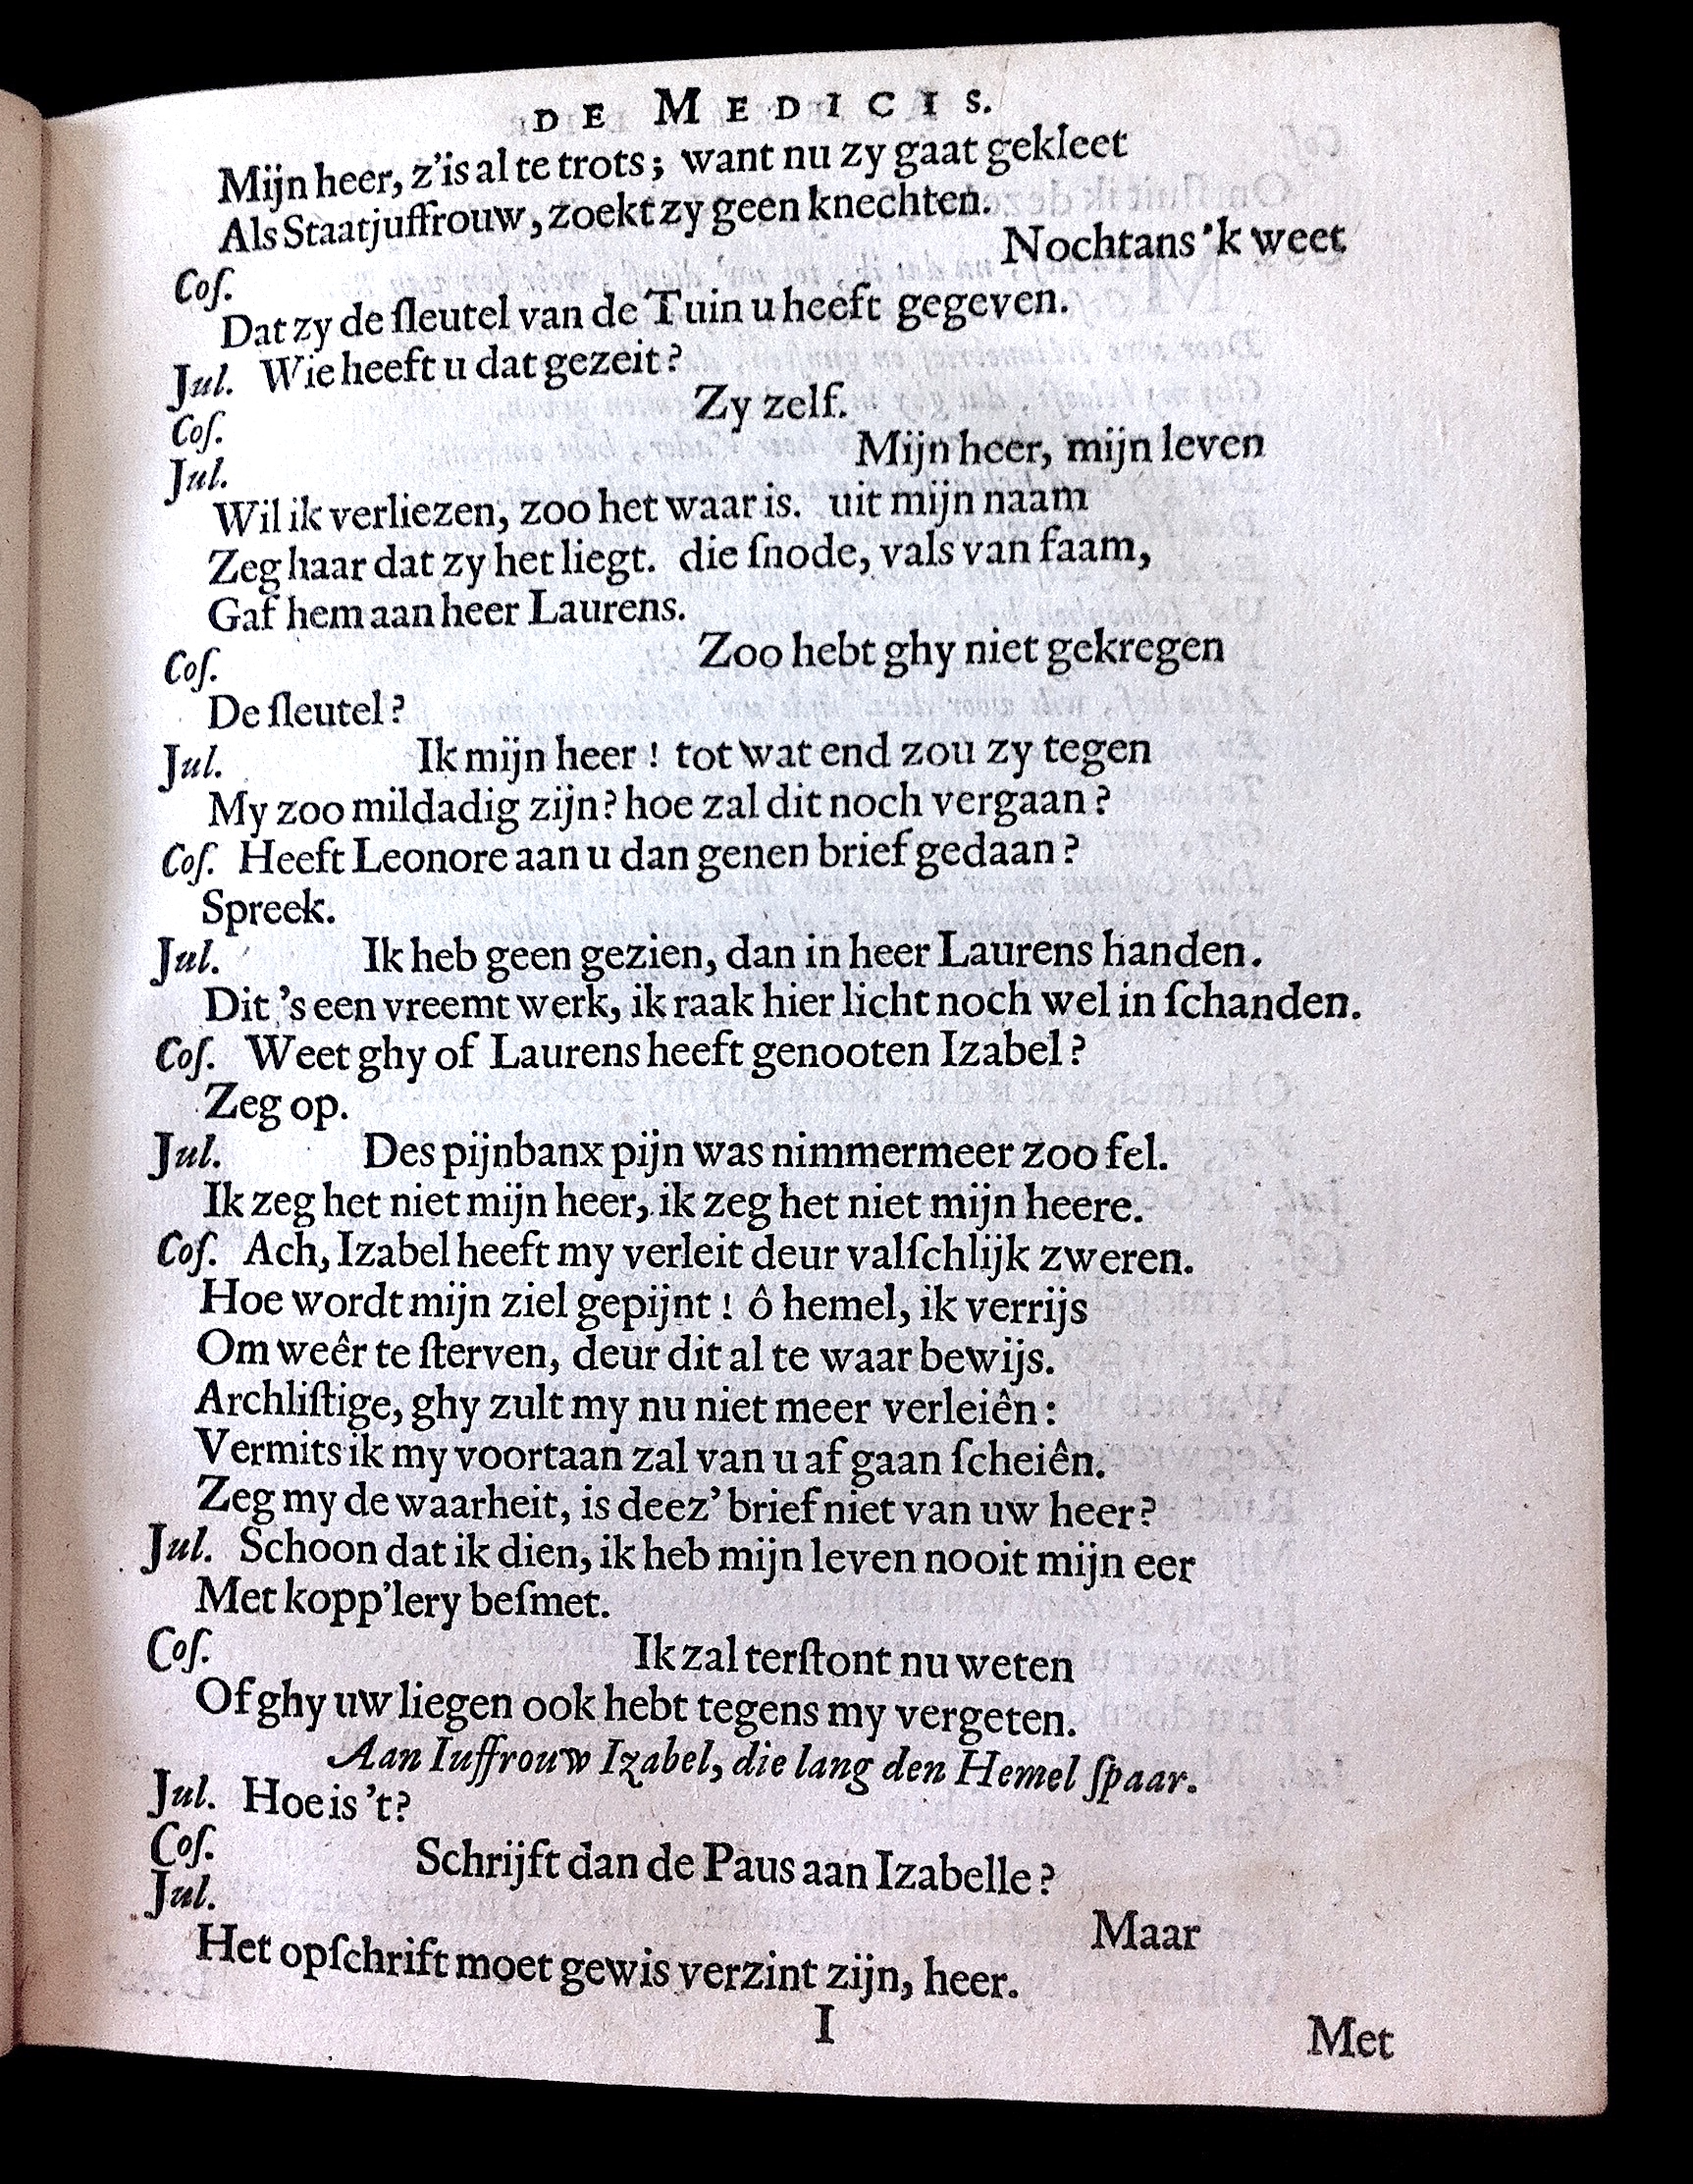 DE MEDICIS.
Mijn heer, z'is al te trots; want nu zy gaat gekleet
Als Staatjuffrouw, zoekt zy geen knechten.
Coſ. Nochtans 'k weet
Dat zy de ſleutel van de Tuin u heeft gegeven.
Jul. Wie heeft u dat gezeit?
Coſ. Zy zelf.
Jul. Mijn heer, mijn leven
Wil ik verliezen, zoo het waar is. uit mijn naam
Zeg haar dat zy het liegt. die ſnode, vals van faam,
Gaf hem aan heer Laurens.
Coſ. Zoo hebt ghy niet gekregen
De ſleutel?
Jul. Ik mijn heer! tot wat end zou zy tegen
My zoo mildadig zijn? hoe zal dit noch vergaan?
Coſ. Heeft Leonore aan u dan genen brief gedaan?
Spreek.
Jul. Ik heb geen gezien, dan in heer Laurens handen.
Dit 's een vreemt werk, ik raak hier licht noch wel in ſchanden.
Coſ. Weet ghy of Laurens heeft genooten Izabel?
Zeg op.
Jul. Des pijnbanx pijn was nimmermeer zoo fel.
Ik zeg het niet mijn heer, ik zeg het niet mijn heere.
Coſ. Ach, Izabel heeft my verleit deur valſchlijk zweren.
Hoe wordt mijn ziel gepijnt! ô hemel, ik verrijs
Om weêr te ſterven, deur dit al te waar bewijs.
Archliſtige, ghy zult my nu niet meer verleiên:
Vermits ik my voortaan zal van u af gaan ſcheiên.
Zeg my de waarheit, is deez' brief niet van uw heer?
Jul. Schoon dat ik dien, ik heb mijn leven nooit mijn eer
Met kopp'lery beſmet.
Coſ. Ik zal terſtont nu weten
Of ghy uw liegen ook hebt tegens my vergeten.
Aan Iuffrouw Izabel, die lang den Hemel ſpaar.
Jul. Hoe is 't?
Coſ. Schrijft dan de Paus aan Izabelle?
Jul. Maar
Het opſchrift moet gewis verzint zijn, heer.
I
Met